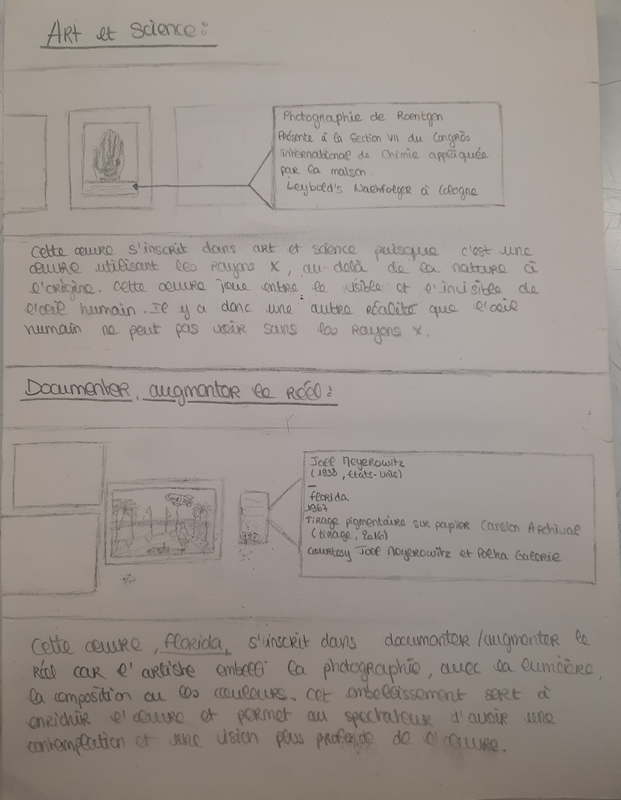 Art et Science :
Photographie de Roentgen
Présenté à la Section VII du Congrès
international de Chimie appliquée
par la maison
Leybold's Nachfolger à Cologne
Cette œuvre s'inscrit dans art et science puisque c'est une
œuvre utilisant les Rayons X, au-delà de la nature à
l'origine. Cette œuvre joue entre le visible et l'invisible de
l'œil humain. Il y a donc une autre réalité que l'œil
humain ne peut pas voir sans les Rayons X.
Documenter, augmenter le Réel :
Joel Meyerowitz
(1938, États-Unis)
—
Florida
1967
Tirage pigmentaire sur papier Canson Archival
(tirage, 2016)
Courtesy Joel Meyerowitz et Polka Galerie
Cette œuvre, Florida, s'inscrit dans documenter/augmenter le
Réel car l'artiste embelli la photographie, avec la lumière,
la composition ou les couleurs. Cet embellissement sert à
enrichir l'œuvre et permet au spectateur d'avoir une
contemplation et une vision plus profonde de l'œuvre.